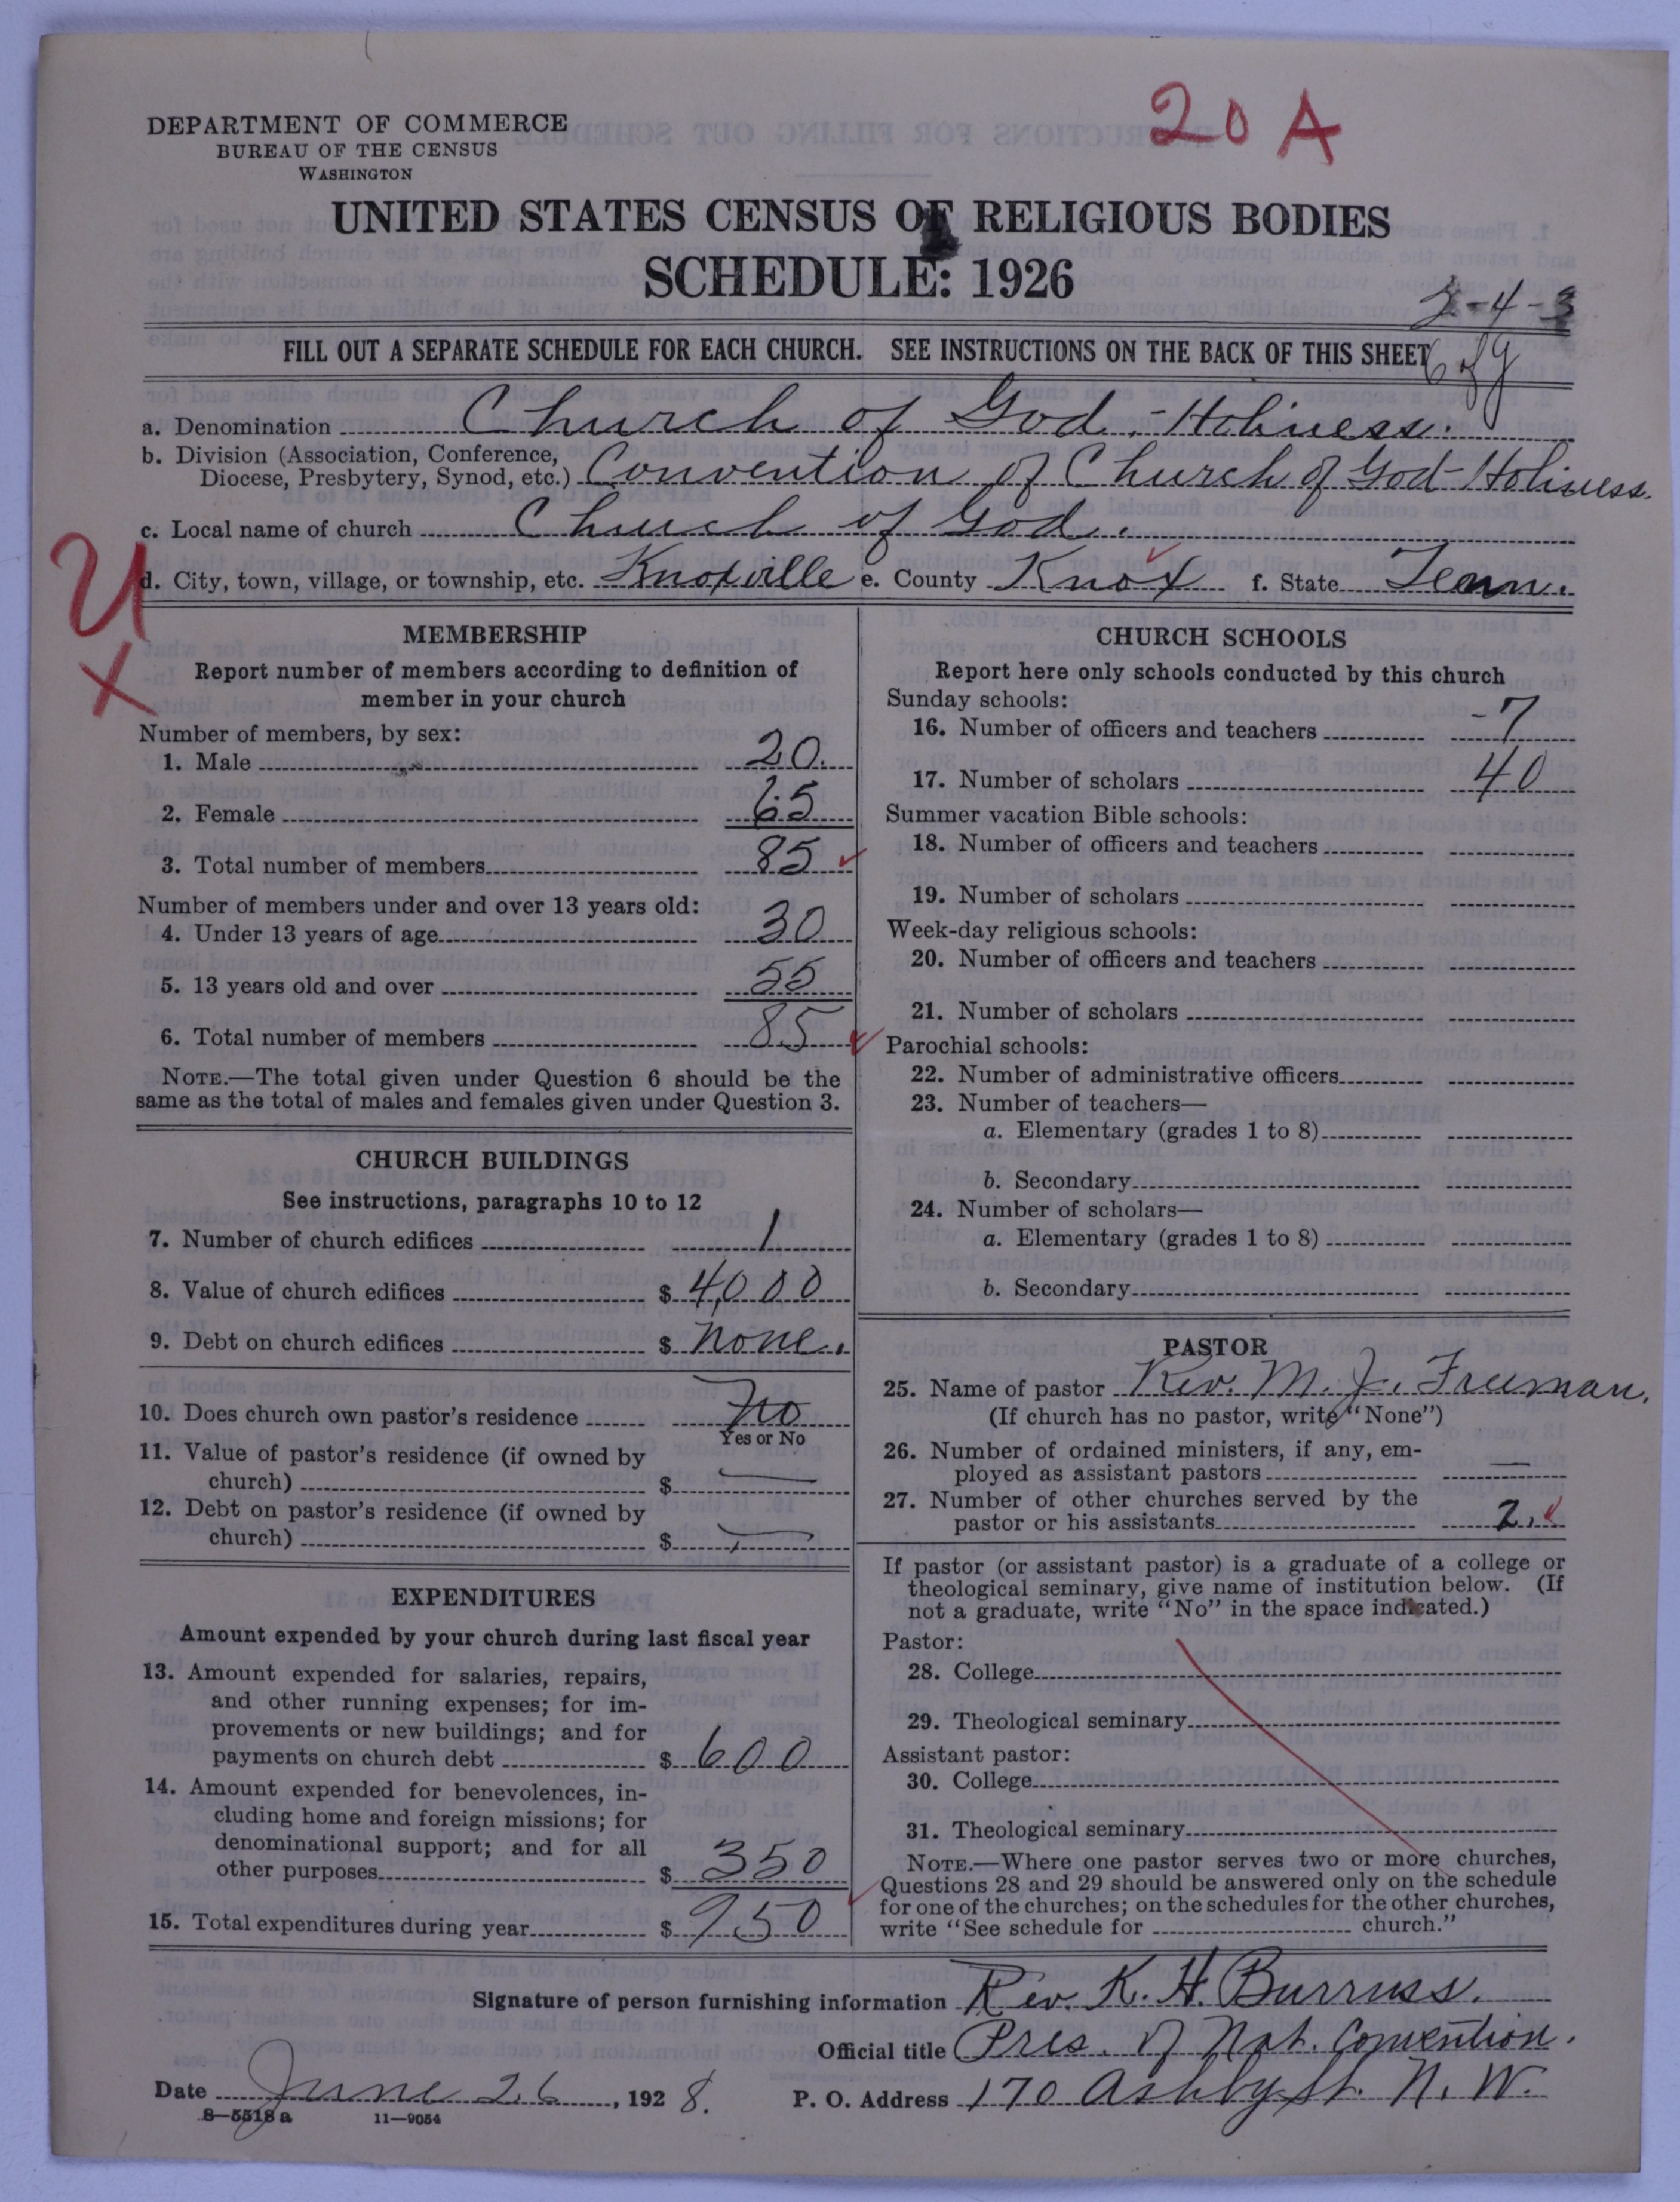 20 A
DEPARTMENT OF COMMERCE
BUREAU OF THE CENSUS
WASHINGTON
UNITED STATES CENSUS OF RELIGIOUS BODIES
SCHEDULE: 1926
2-4-3
FILL OUT A SEPARATE SCHEDULE FOR EACH CHURCH. SEE INSTRUCTIONS ON THE BACK OF THIS SHEET
a. Denomination Church of God, - Holiness.
b. Division (Association, Conference,
Diocese, Presbytery, Synod, etc.) Convention of Church of God - Holiness.
c. Local name of church Church of God.
d. City, town, village, or township, etc. Knoxville e. County Knox f. State Tenn.
MEMBERSHIP
Report number of members according to definition of
member in your church
Number of members, by sex:
1. Male 20.
2. Female 65
3. Total number of members 85
Number of members under and over 13 years old:
4. Under 13 years of age 30
5. 13 years old and over 55
6. Total number of members 85
NOTE.—The total given under Question 6 should be the
same as the total of males and females given under Question 3.
CHURCH BUILDINGS
See instructions, paragraphs 10 to 12
7. Number of church edifices 1
8. Value of church edifices $ 4,000
9. Debt on church edifices $ none.
10. Does church own pastor's residence No
Yes or No
11. Value of pastor's residence (if owned by
church) $ —
12. Debt on pastor's residence (if owned by
church) $ —
EXPENDITURES
Amount expended by your church during last fiscal year
13. Amount expended for salaries, repairs,
and other running expenses; for im-
provements or new buildings; and for
payments on church debt $ 600
14. Amount expended for benevolences, in-
cluding home and foreign missions; for
denominational support; and for all
other purposes $ 350
15. Total expenditures during year $ 950
CHURCH SCHOOLS
Report here only schools conducted by this church
Sunday schools:
16. Number of officers and teachers - 7
17. Number of scholars 40
Summer vacation Bible schools:
18. Number of officers and teachers
19. Number of scholars
Week-day religious schools:
20. Number of officers and teachers
21. Number of scholars
Parochial schools:
22. Number of administrative officers
23. Number of teachers—
a. Elementary (grades 1 to 8)
b. Secondary
24. Number of scholars—
a. Elementary (grades 1 to 8)
b. Secondary
PASTOR
25. Name of pastor Rev. M. J. Freeman.
(If church has no pastor, write "None")
26. Number of ordained ministers, if any, em-
ployed as assistant pastors —
27. Number of other churches served by the
pastor or his assistants 2.
If pastor (or assistant pastor) is a graduate of a college or
theological seminary, give name of institution below. (If
not a graduate, write "No" in the space indicated.)
Pastor:
28. College
29. Theological seminary
Assistant pastor:
30. College
31. Theological seminary
NOTE.—Where one pastor serves two or more churches,
Questions 28 and 29 should be answered only on the schedule
for one of the churches; on the schedules for the other churches,
write "See schedule for church."
Signature of person furnishing information Rev. K. H. Burruss.
Official title Pres. of Nat. Convention.
Date June 26, 1928. P. O. Address 170 Ashby St. N. W.
8—5518 a 11—9054